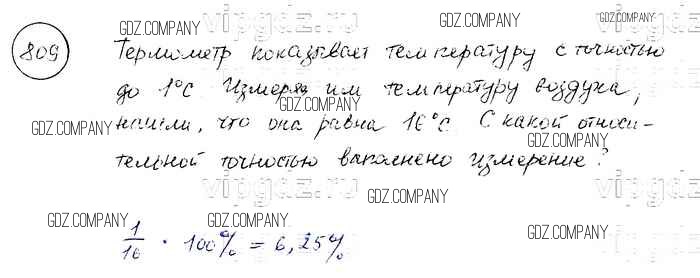 809
Термометр показывает температуру с точностью
до 1°С Измеряя им температуру воздуха,
нашли, что она равна 16°С. С какой относи-
тельной точностью выполнено измерение?
1/16 · 100% = 6,25%
GDZ.COMPANY
GDZ.COMPANY
GDZ.COMPANY
GDZ.COMPANY
GDZ.COMPANY
GDZ.COMPANY
GDZ.COMPANY
GDZ.COMPANY
GDZ.COMPANY
GDZ.COMPANY
GDZ.COMPANY
GDZ.COMPANY
vipgdz.ru
vipgdz.ru
vipgdz.ru
vipgdz.ru